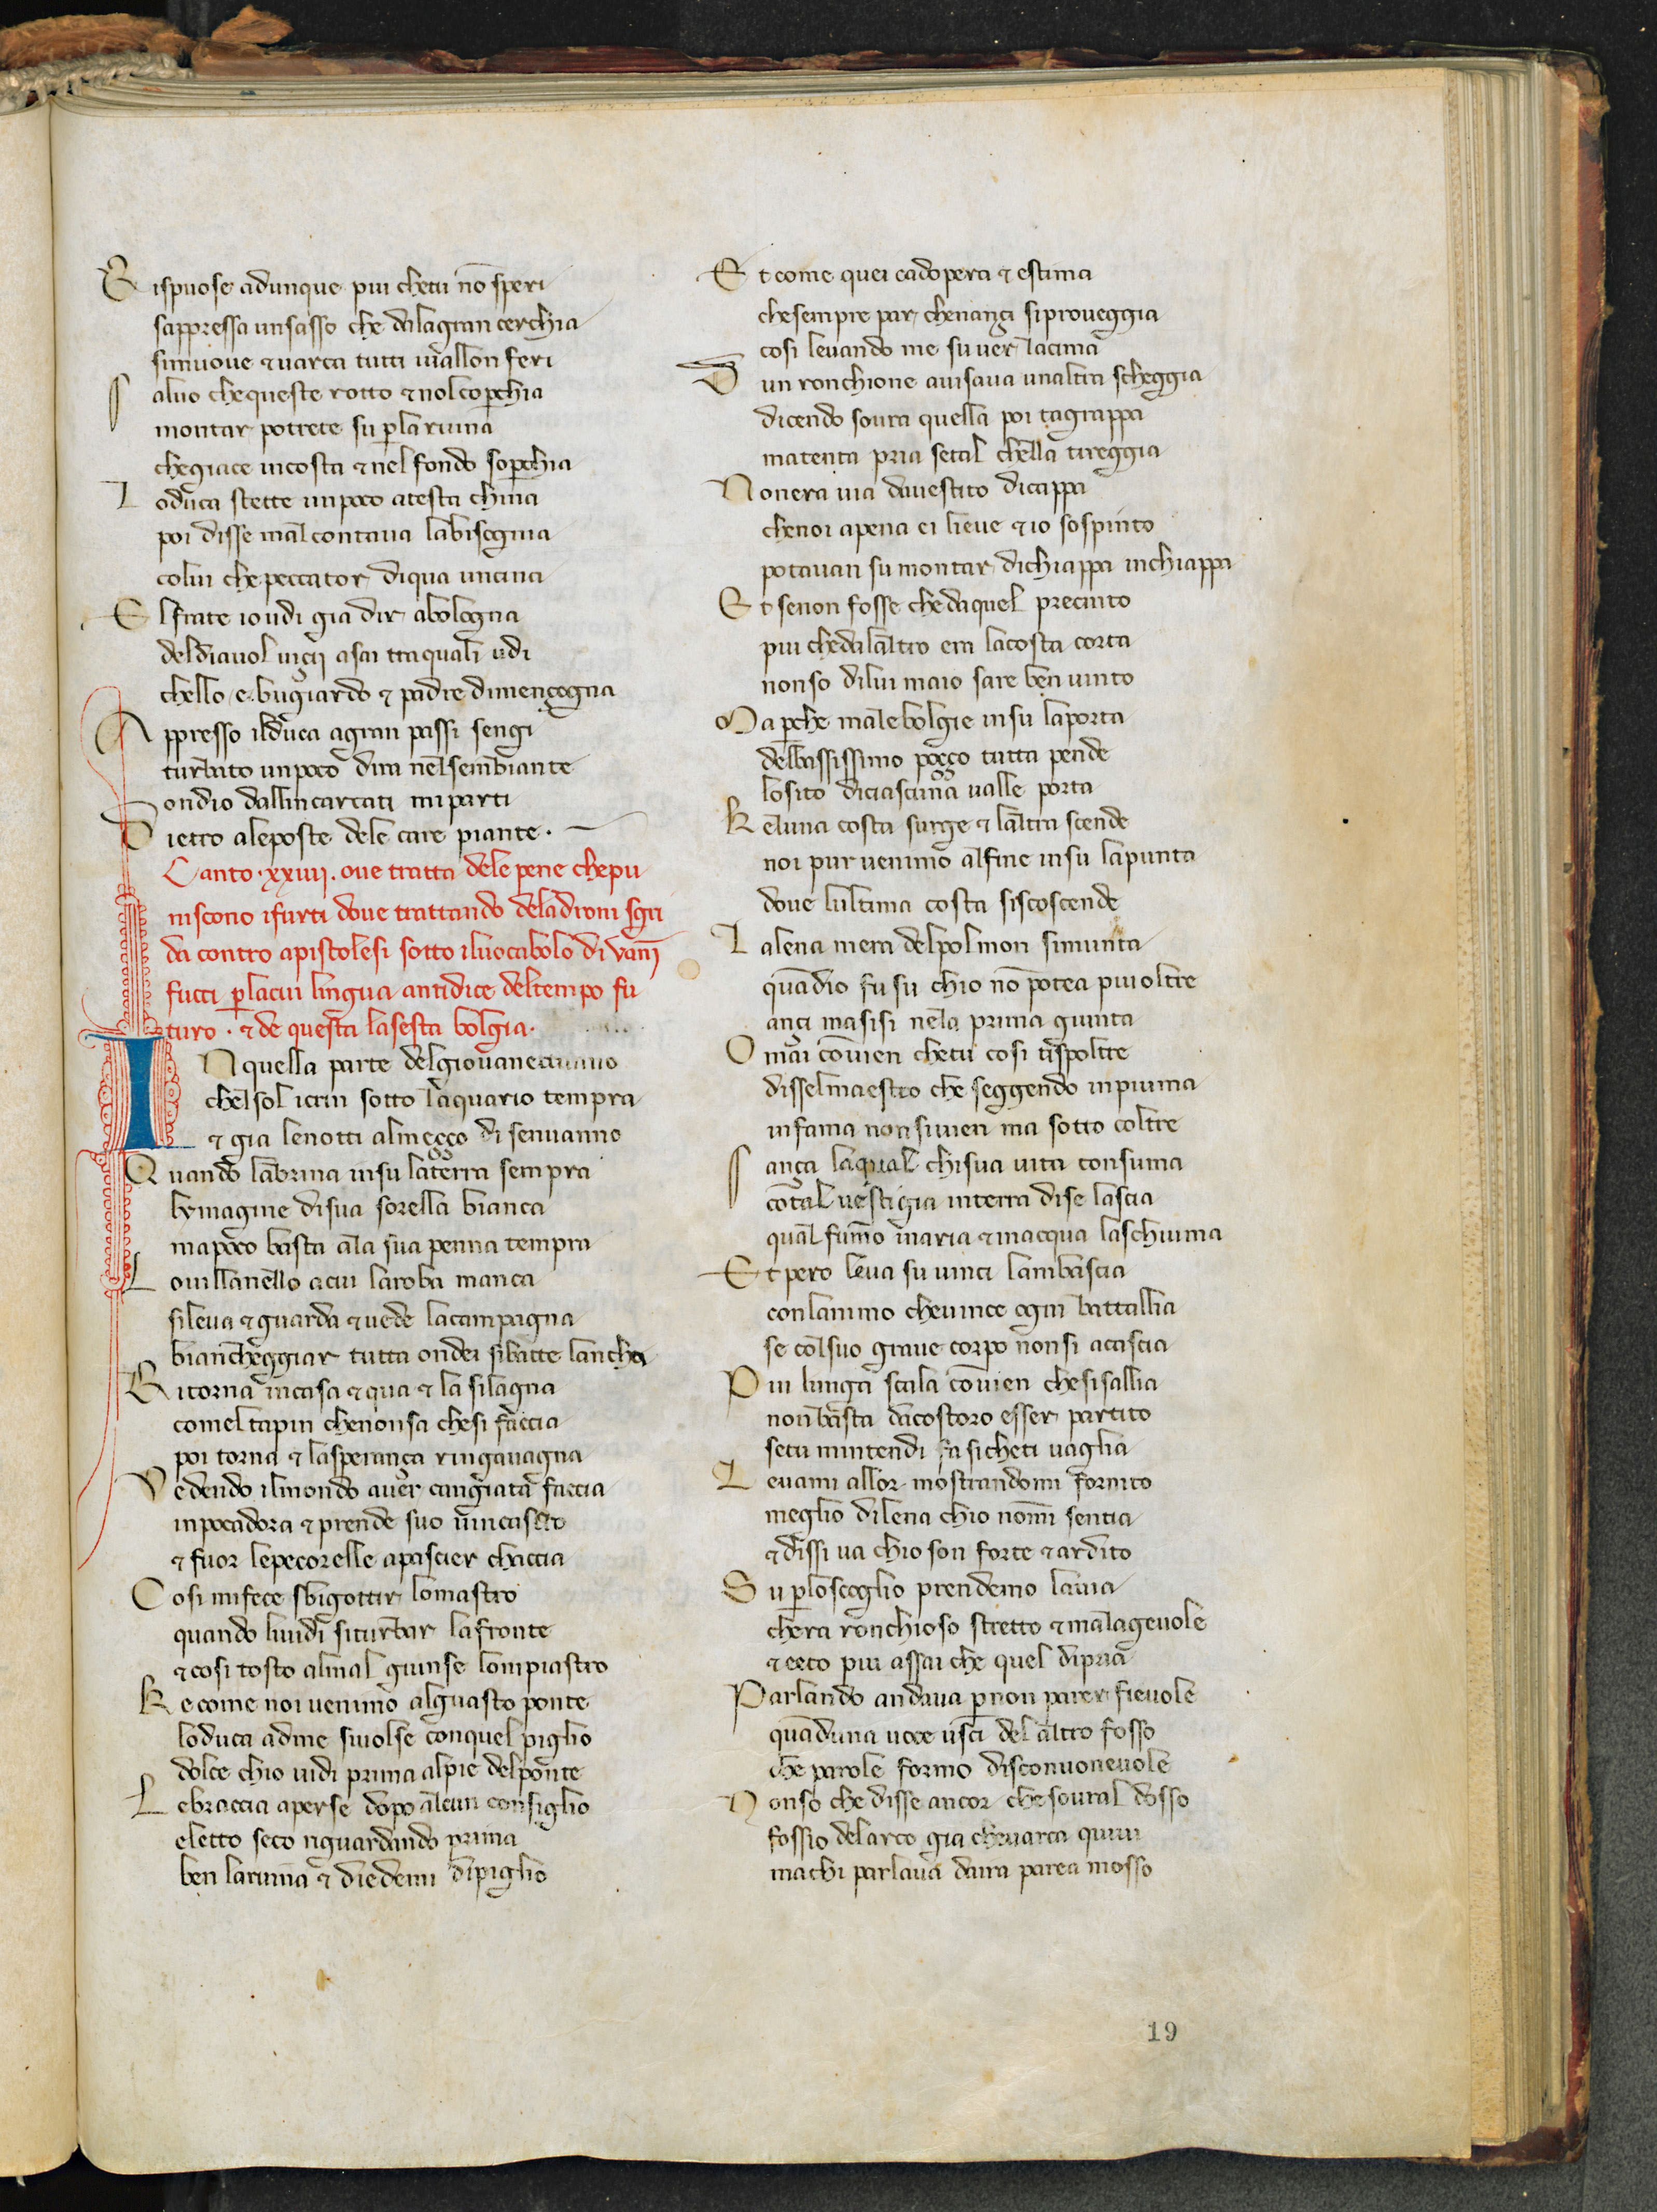 Rispuose adunque piu chetu nō speri
sappressa unsasso che dalagran cerchia
simuove & varca tutti ivallon feri
Salvo chequeste rotto & nol coperchia
montar potrete su p̲laruina
chegiace incosta & nel fondo sop̲chia
Loduca stette unpoco atesta china
poi disse mal contava labisogna
colui chepeccator diqua uncina
El frate io udi gia dir abologna
deldiavol vicij asai traquali udi
chello e bugiardo & padre dimençogna
Appresso ilduca agran passi sengi
turbato unpoco dira nelsembiante
ondio dallincarcati miparti
Dietro aleposte dele care piante.
Canto .xxiiij. ove tratta dele pene chepu
niscono ifurti dove trattando deladroni sgri
da contro apistolesi sotto ilvocabolo di vanī
fucci p̲lacui lingua antidice deltempo fu
turo . & de questa lasesta bolgia.
INquella parte delgiovanecanno
chelsol icrin sotto laquario tempra
& gia lenotti almeçço di senvanno
Quando labrina insu laterra sempra
lymagine disua sorella bianca
mapoco basta ala sua penna tempra
Lo villanello acui laroba manca
sileva & guarda & vede lacampagna
biancheggiar tutta ondei sibatte lancha
Ritorna incasa & qua & la silagna
comel tapin chenonsa chesi faccia
poi torna & lasperança ringavagna
Vedendo ilmondo aver cangiata faccia
inpocadora & prende suo vincastro
& fuor lepecorelle apascier chaccia
Cosi mifece sbigottir lomastro
quando liudi siturbar lafronte
& cosi tosto almal giunse lompiastro
Ke come noi venimo alguasto ponte
loduca adme sivolse conquel piglio
dolce chio vidi prima alpie delponte
Lebraccia aperse dopo alcun consiglio
eletto seco riguardando prima
ben laruina & diedemi dipiglio
Et come quei cadopera & estima
chesempre par chenançi siproveggia
cosi levando me su ver lacima
Dun ronchione avisava unaltra scheggia
dicendo sovra quella poi tagrappa
matenta pria setal chella tireggia
Nonera via davestito dicappa
chenoi apena ei lieve & io sospinto
potavan su montar dichiappa inchiappa
Et senon fosse chedaquel precinto
piu chedalaltro era lacosta corta
nonso dilui maio sare ben vinto
Ma p̲che malebolgie insu laporta
delbassissimo poçço tutta pende
losito diciascuna valle porta
Keluna costa surge & laltra scende
noi pur venimo alfine insu lapunta
dove lultima costa siscoscende
Lalena mera delpolmon simunta
quādio fu su chio nō potea piu oltre
anci masisi nela prima giunta
Omai cōvien chetu cosi tispoltre
disselmaestro che seggendo inpiuma
infama non sivien ma sotto coltre
Sança laqual chisua vita consuma
cotal vestigia interra dise lascia
qual fūmo inaria & inacqua laschiuma
Et pero leva su vinci lambascia
conlanimo chevince ogni battallia
se colsuo grave corpo nonsi acascia
Piu lunga scala cōvien chesisallia
nonbasta dacostoro esser partito
setu mintendi fa sicheti vaglia
Levami allor mostrandomi fornito
meglio dilena chio nomi sentia
& dissi va chio son forte & ardito
Su p̲loscoglio prendemo lavia
chera ronchioso stretto & malagevole
& erto piu assai che quel dipria
Parlando andava p̲non parer fievole
quāduna voce usci del altro fosso
che parole formo disconvonevole
Nonso che disse ancor chesovral dosso
fossio delarco gia chevarca quivi
machi parlava daira parea mosso
19